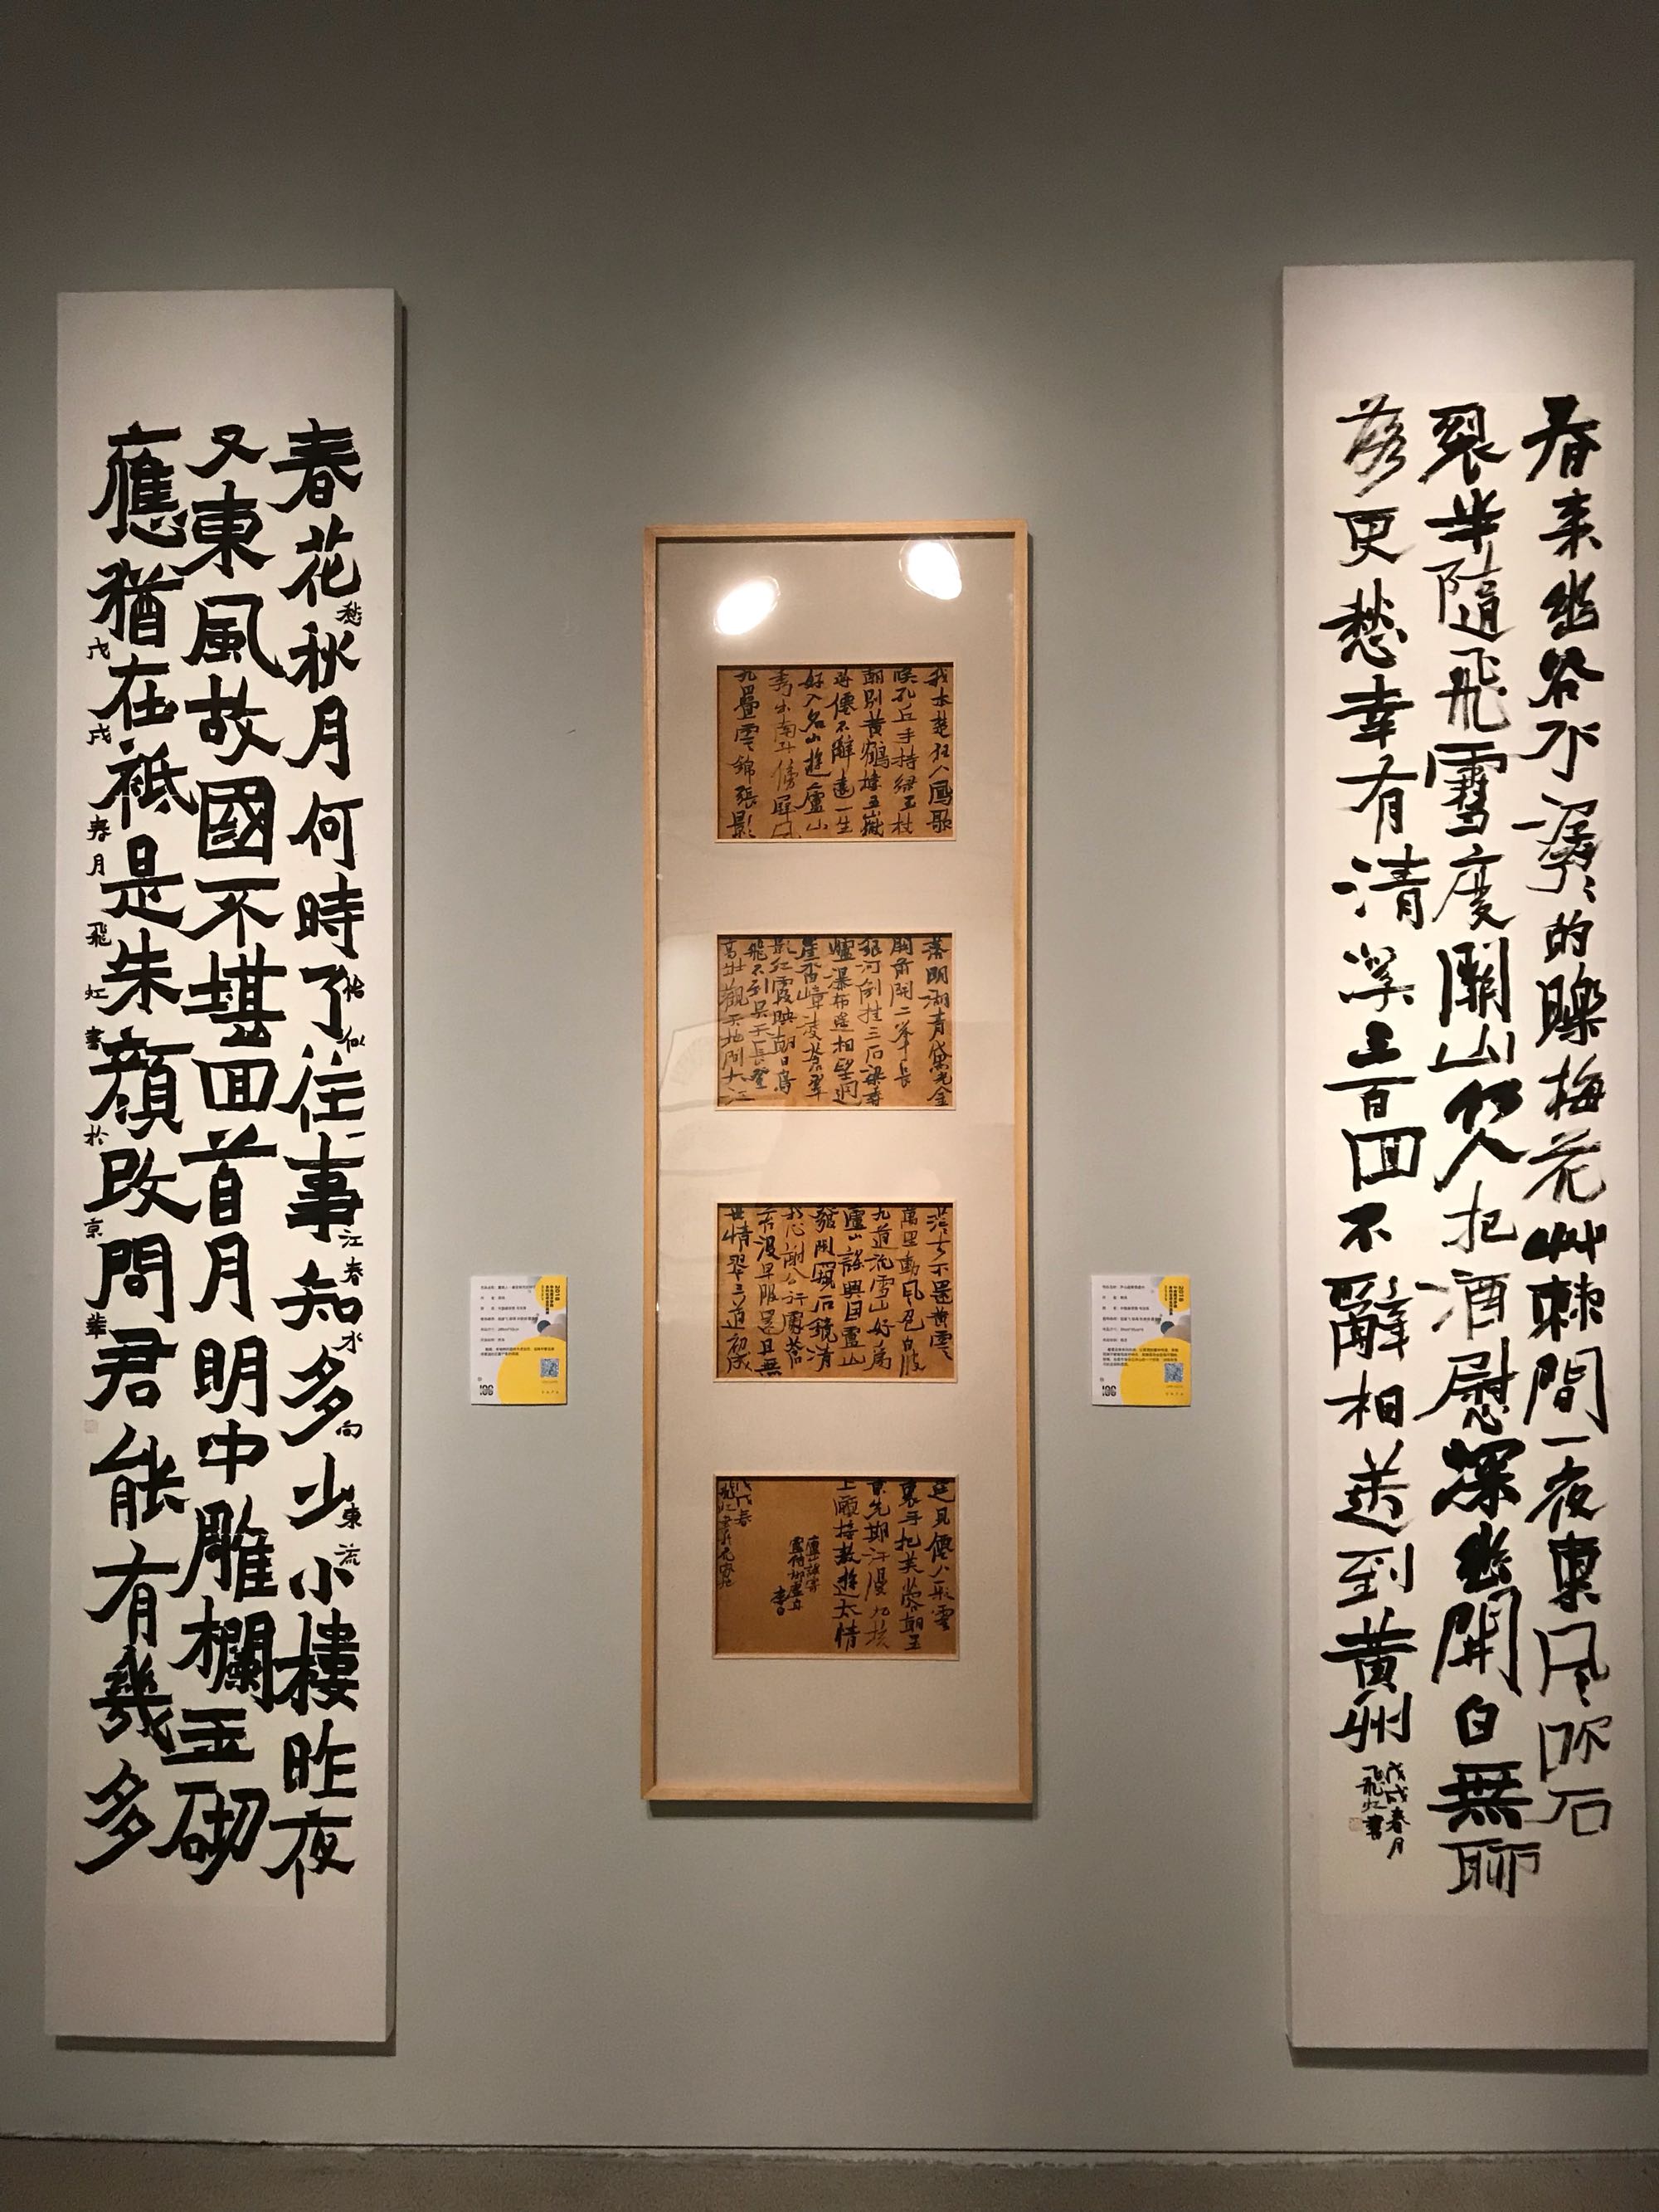 春来幽谷水潺〻的皪梅花艸棘間一夜東风吹石
裂半隨飛雪度關山何人把酒慰深幽開自無聊
落更愁幸有清溪三百曲不辭相送到黄州
戊戌春月
飛虹書
我本楚狂人鳳歌
笑孔丘手持緑玉杖
朝别黄鶴樓五嶽
尋僊不辭遠一生
好入名山遊廬山
秀出南斗傍屏风
九疊雲錦張影
落明湖青黛光金
闕前開二峯長
銀河倒挂三石梁香
爐瀑布遥相望迴
崖沓嶂凌蒼翠
影紅霞映朝日鳥
飛不到吴天長登
高壮觀天地間大江
茫〻去不還黄雲
萬里動风色白波
九道流雪山好為
廬山謡興因廬山
發閑窺石鏡清
我心謝公行處蒼
苔没早服還丹無
世情琴心三道初成
遥見僊人彩雲
裏手把芙蓉朝玉
京先期汗漫九垓
上願接敖遊太清
廬山謡寄
盧侍御虚舟
李白
戊戌春
飛虹書於
春花秋月何時了往事知多少小樓昨夜
又東風故國不堪回首月明中雕欄玉砌
應猶在祇是朱顔改問君能有幾多
愁恰似一江春水向東流
戊戌春月飛虹書於京華